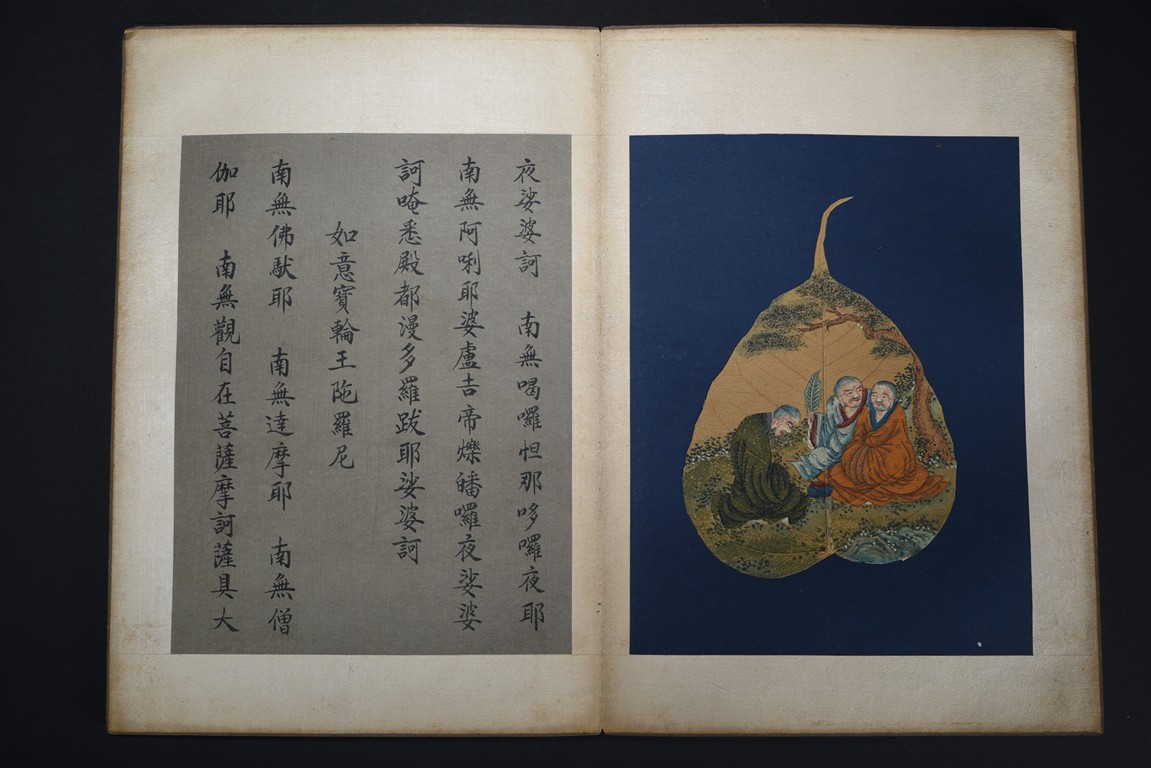 夜娑婆訶　南無喝囉怛那哆囉夜耶
南無阿唎耶婆盧吉帝爍皤囉夜娑婆
訶唵悉殿都漫多羅跋耶娑婆訶
如意寶輪王陀羅尼
南無佛馱耶　南無達摩耶　南無僧
伽耶　南無觀自在菩薩摩訶薩具大